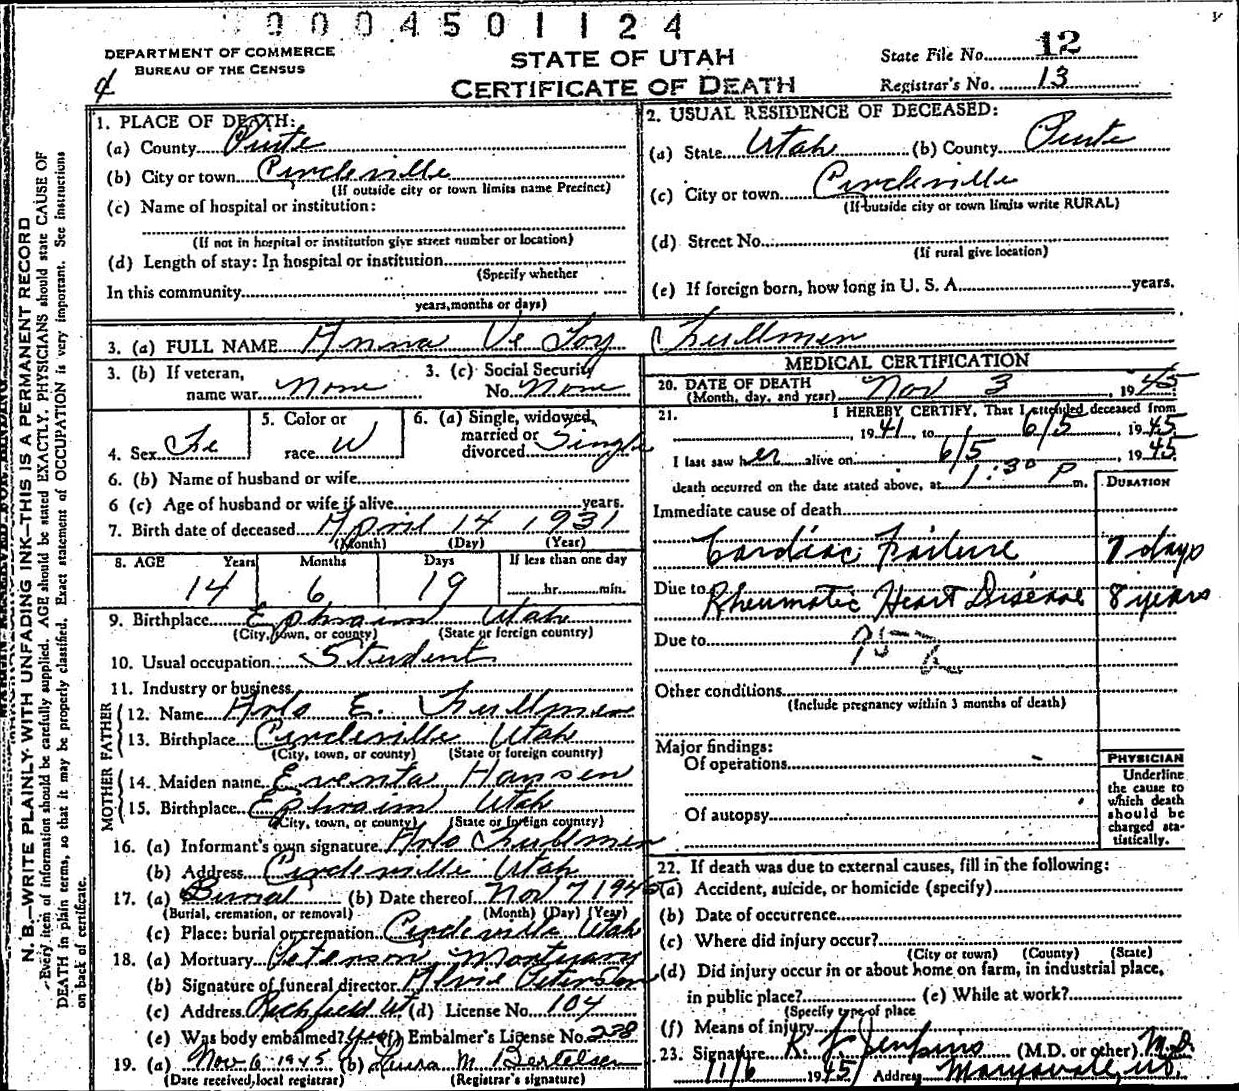 0004501124
DEPARTMENT OF COMMERCE
BUREAU OF THE CENSUS
STATE OF UTAH
CERTIFICATE OF DEATH
State File No. 12
Registrar's No. 13
4
N. B.—WRITE PLAINLY WITH UNFADING INK—THIS IS A PERMANENT RECORD
Every item of information should be carefully supplied. AGE should be stated EXACTLY. PHYSICIANS should state CAUSE OF
DEATH in plain terms, so that it may be properly classified. Exact statement of OCCUPATION is very important. See instructions
on back of certificate.
1. PLACE OF DEATH:
(a) County Piute
(b) City or town Circleville
(If outside city or town limits name Precinct)
(c) Name of hospital or institution:
(If not in hospital or institution give street number or location)
(d) Length of stay: In hospital or institution
(Specify whether
In this community
years, months or days)
2. USUAL RESIDENCE OF DECEASED:
(a) State Utah (b) County Piute
(c) City or town Circleville
(If outside city or town limits write RURAL)
(d) Street No.
(If rural give location)
(e) If foreign born, how long in U. S. A. years.
3. (a) FULL NAME Anna Ve Loy
3. (b) If veteran,
name war None
3. (c) Social Security
No. None
4. Sex Fe
5. Color or
race W
6. (a) Single, widowed,
married or
divorced Single
6. (b) Name of husband or wife
6 (c) Age of husband or wife if alive years.
7. Birth date of deceased April 14 1931
(Month) (Day) (Year)
8. AGE Years Months Days If less than one day
14 6 19 hr. min.
9. Birthplace Ephraim Utah
(City, town, or county) (State or foreign country)
10. Usual occupation Student
11. Industry or business
FATHER
12. Name Arlo E.
13. Birthplace Circleville Utah
(City, town, or county) (State or foreign country)
MOTHER
14. Maiden name Eventa Hansen
15. Birthplace Ephraim Utah
(City, town, or county) (State or foreign country)
16. (a) Informant's own signature Arlo
(b) Address Circleville Utah
17. (a) Burial (b) Date thereof Nov 7 1945
(Burial, cremation, or removal) (Month) (Day) (Year)
(c) Place: burial or cremation Circleville Utah
18. (a) Mortuary Peterson Mortuary
(b) Signature of funeral director Alvin Peterson
(c) Address Richfield Ut (d) License No. 104
(e) Was body embalmed? yes (f) Embalmer's License No. 238
19. (a) Nov 6 1945 (b) Laura M Bertelsen
(Date received, local registrar) (Registrar's signature)
MEDICAL CERTIFICATION
20. DATE OF DEATH Nov 3, 1945
(Month, day, and year)
21. I HEREBY CERTIFY, That I attended deceased from
, 1941, to 6/5, 1945
I last saw her alive on 6/5, 1945
death occurred on the date stated above, at 1:30 P m.
DURATION
Immediate cause of death
Cardiac Failure 7 days
Due to Rheumatic Heart Disease 8 years
Due to
Other conditions
(Include pregnancy within 3 months of death)
Major findings:
Of operations
Of autopsy
PHYSICIAN
Underline
the cause to
which death
should be
charged sta-
tistically.
22. If death was due to external causes, fill in the following:
(a) Accident, suicide, or homicide (specify)
(b) Date of occurrence
(c) Where did injury occur?
(City or town) (County) (State)
(d) Did injury occur in or about home on farm, in industrial place,
in public place? (e) While at work?
(Specify type of place
(f) Means of injury
23. Signature R J Jenkins (M.D. or other) M.D.
11/6 1945 Address Marysvale, Ut.